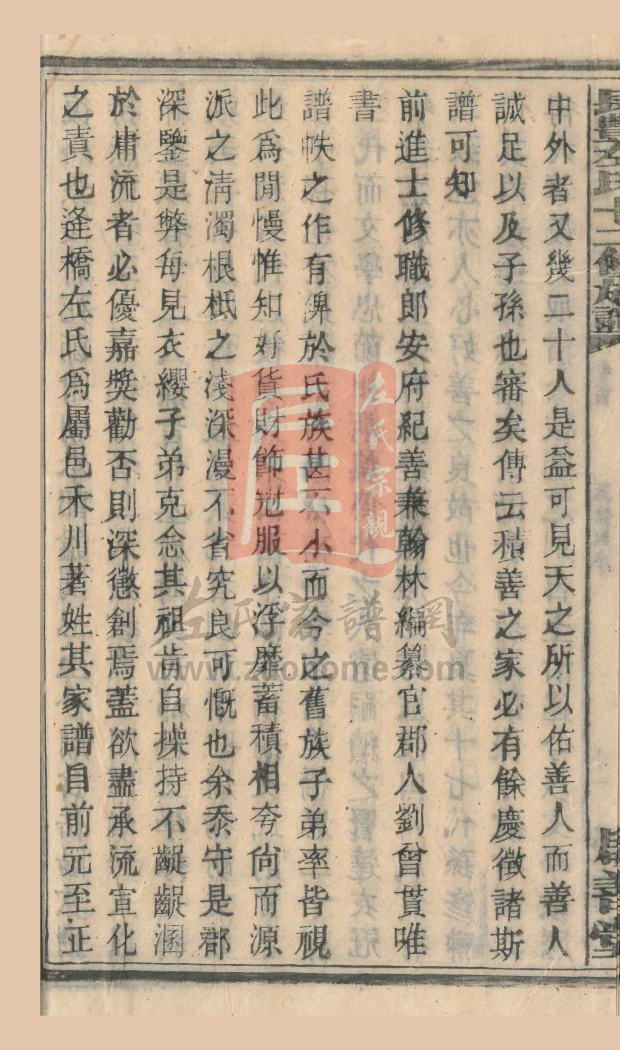 中外者又幾二十人是益可見天之所以佑善人而善人
誠足以及子孫也審矣傳云積善之家必有餘慶徵諸斯
譜可知
前進士修職郎安府紀善兼翰林編纂官郡人劉曾貫唯
書
譜帙之作有裨於氏族甚不小而今之舊族子弟率皆視
此爲閒慢惟知好貨財飾冠服以浮靡蓄積相夸尙而源
派之淸濁根柢之淺深漫不省究良可慨也余忝守是郡
深鑒是弊每見衣纓子弟克念其祖肯自操持不齷齪溷
於庸流者必優嘉奬勸否則深懲創焉蓋欲盡承流宣化
之責也逄橋左氏爲屬邑禾川著姓其家譜自前元至正
左氏宗親
左氏宗譜網
www.zuojiahome.com